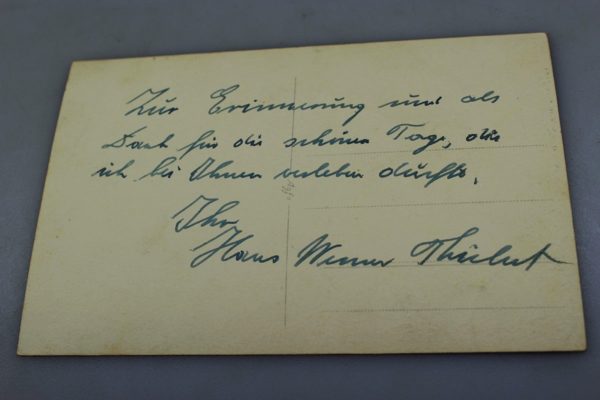 Zur Erinnerung und als
Dank für die schönen Tage, die
ich bei Ihnen verleben durfte.
Ihr
Hans Werner